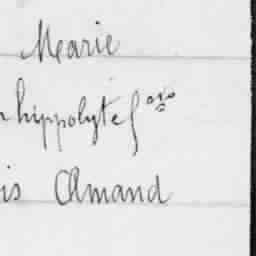 Marie
hippolyte
is Amand